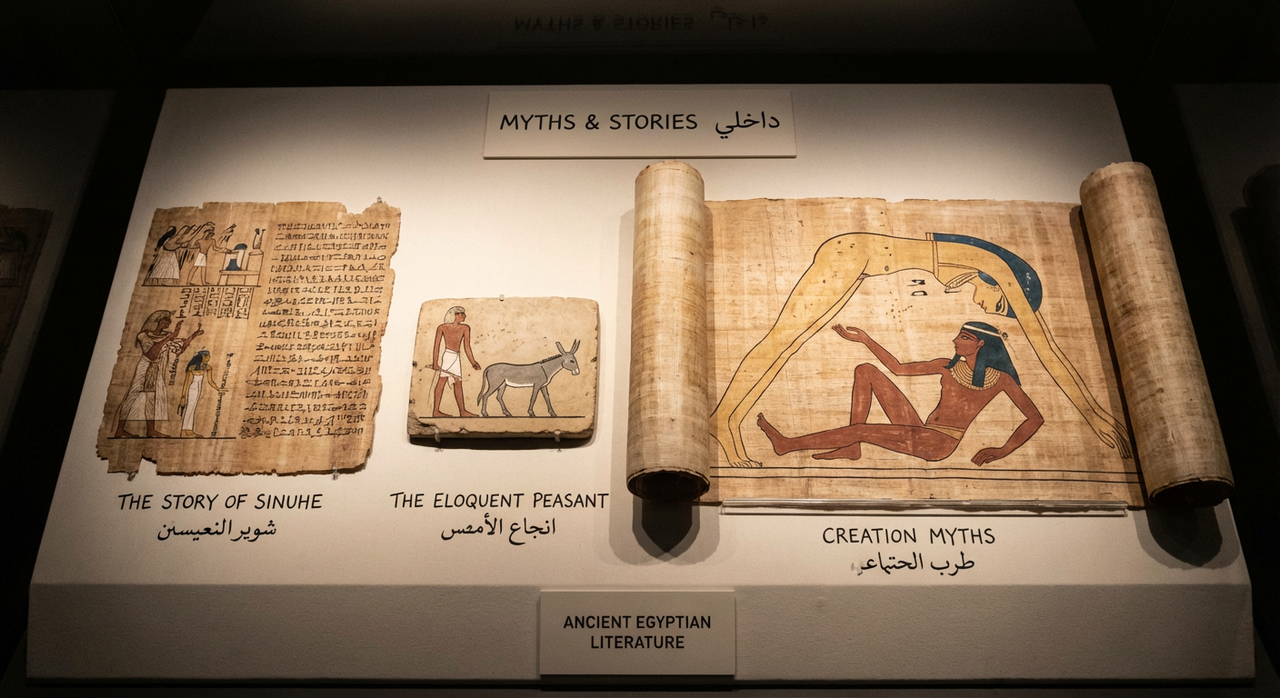 MYTHS & STORIES داخلي
THE STORY OF SINUHE
شوير النعيسىن
THE ELOQUENT PEASANT
انجاع الأمصس
CREATION MYTHS
طرب الحتماعر
ANCIENT EGYPTIAN
LITERATURE